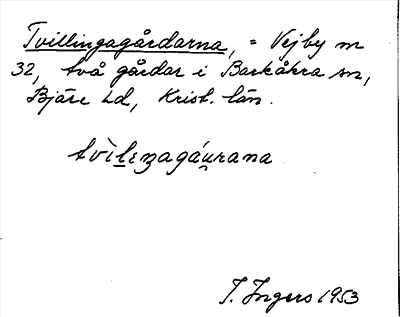 Tvillingagårdarna, = Vejby nr
32, två gårdar i Barkåkra sn,
Bjäre hd, Krist. län.
tvìlεŋagáu̯rana
T. Ingers 1953